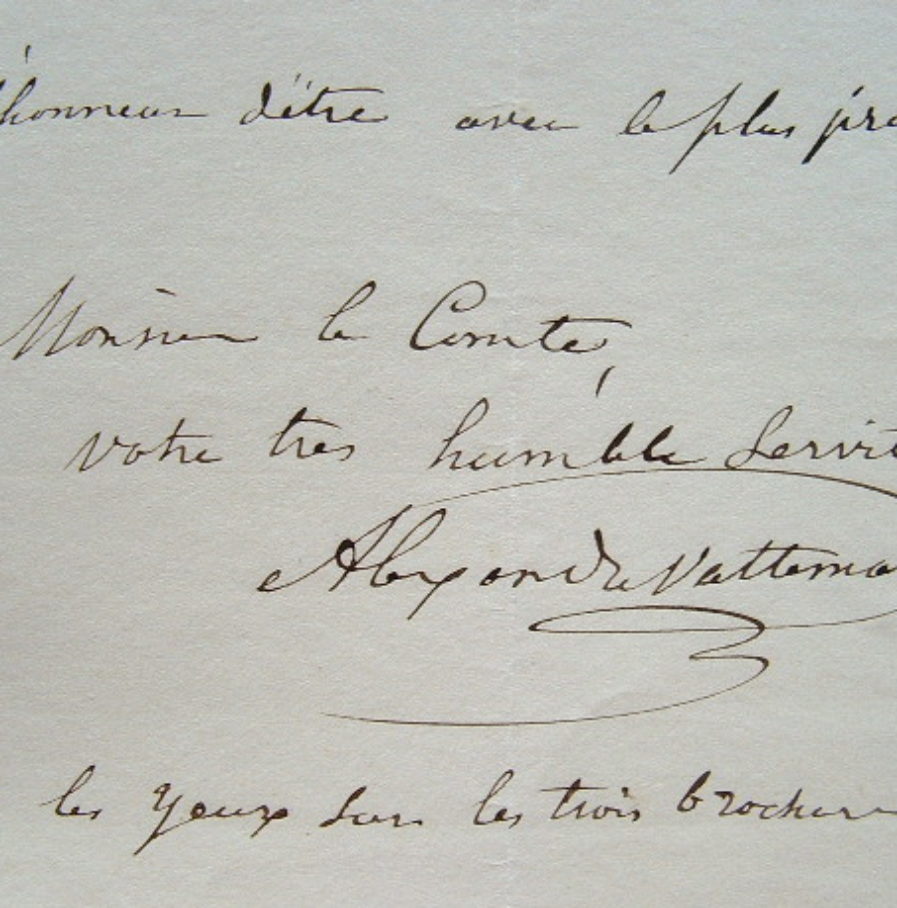 l'honneur d'être avec le plus pro
Monsieur le Comte,
votre très humble Servit
Alexandre Vattema
les yeux sur les trois brochures